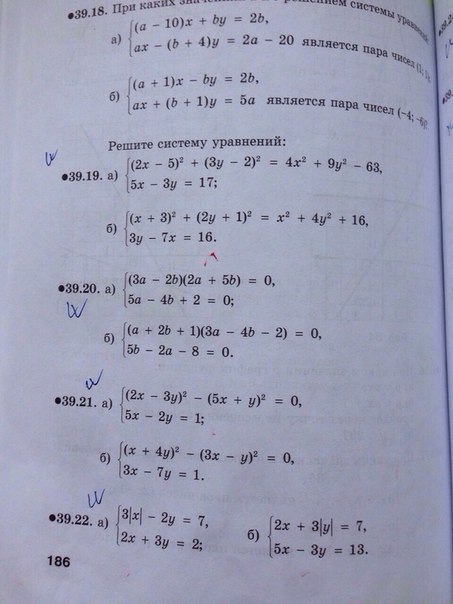 •39.18. При каких решением системы
а) {(a − 10)x + by = 2b,
ax − (b + 4)y = 2a − 20 является пара чисел
б) {(a + 1)x − by = 2b,
ax + (b + 1)y = 5a является пара чисел (−4; −6)?
Решите систему уравнений:
•39.19. а) {(2x − 5)² + (3y − 2)² = 4x² + 9y² − 63,
5x − 3y = 17;
б) {(x + 3)² + (2y + 1)² = x² + 4y² + 16,
3y − 7x = 16.
•39.20. а) {(3a − 2b)(2a + 5b) = 0,
5a − 4b + 2 = 0;
б) {(a + 2b + 1)(3a − 4b − 2) = 0,
5b − 2a − 8 = 0.
•39.21. а) {(2x − 3y)² − (5x + y)² = 0,
5x − 2y = 1;
б) {(x + 4y)² − (3x − y)² = 0,
3x − 7y = 1.
•39.22. а) {3|x| − 2y = 7,
2x + 3y = 2;
б) {2x + 3|y| = 7,
5x − 3y = 13.
186